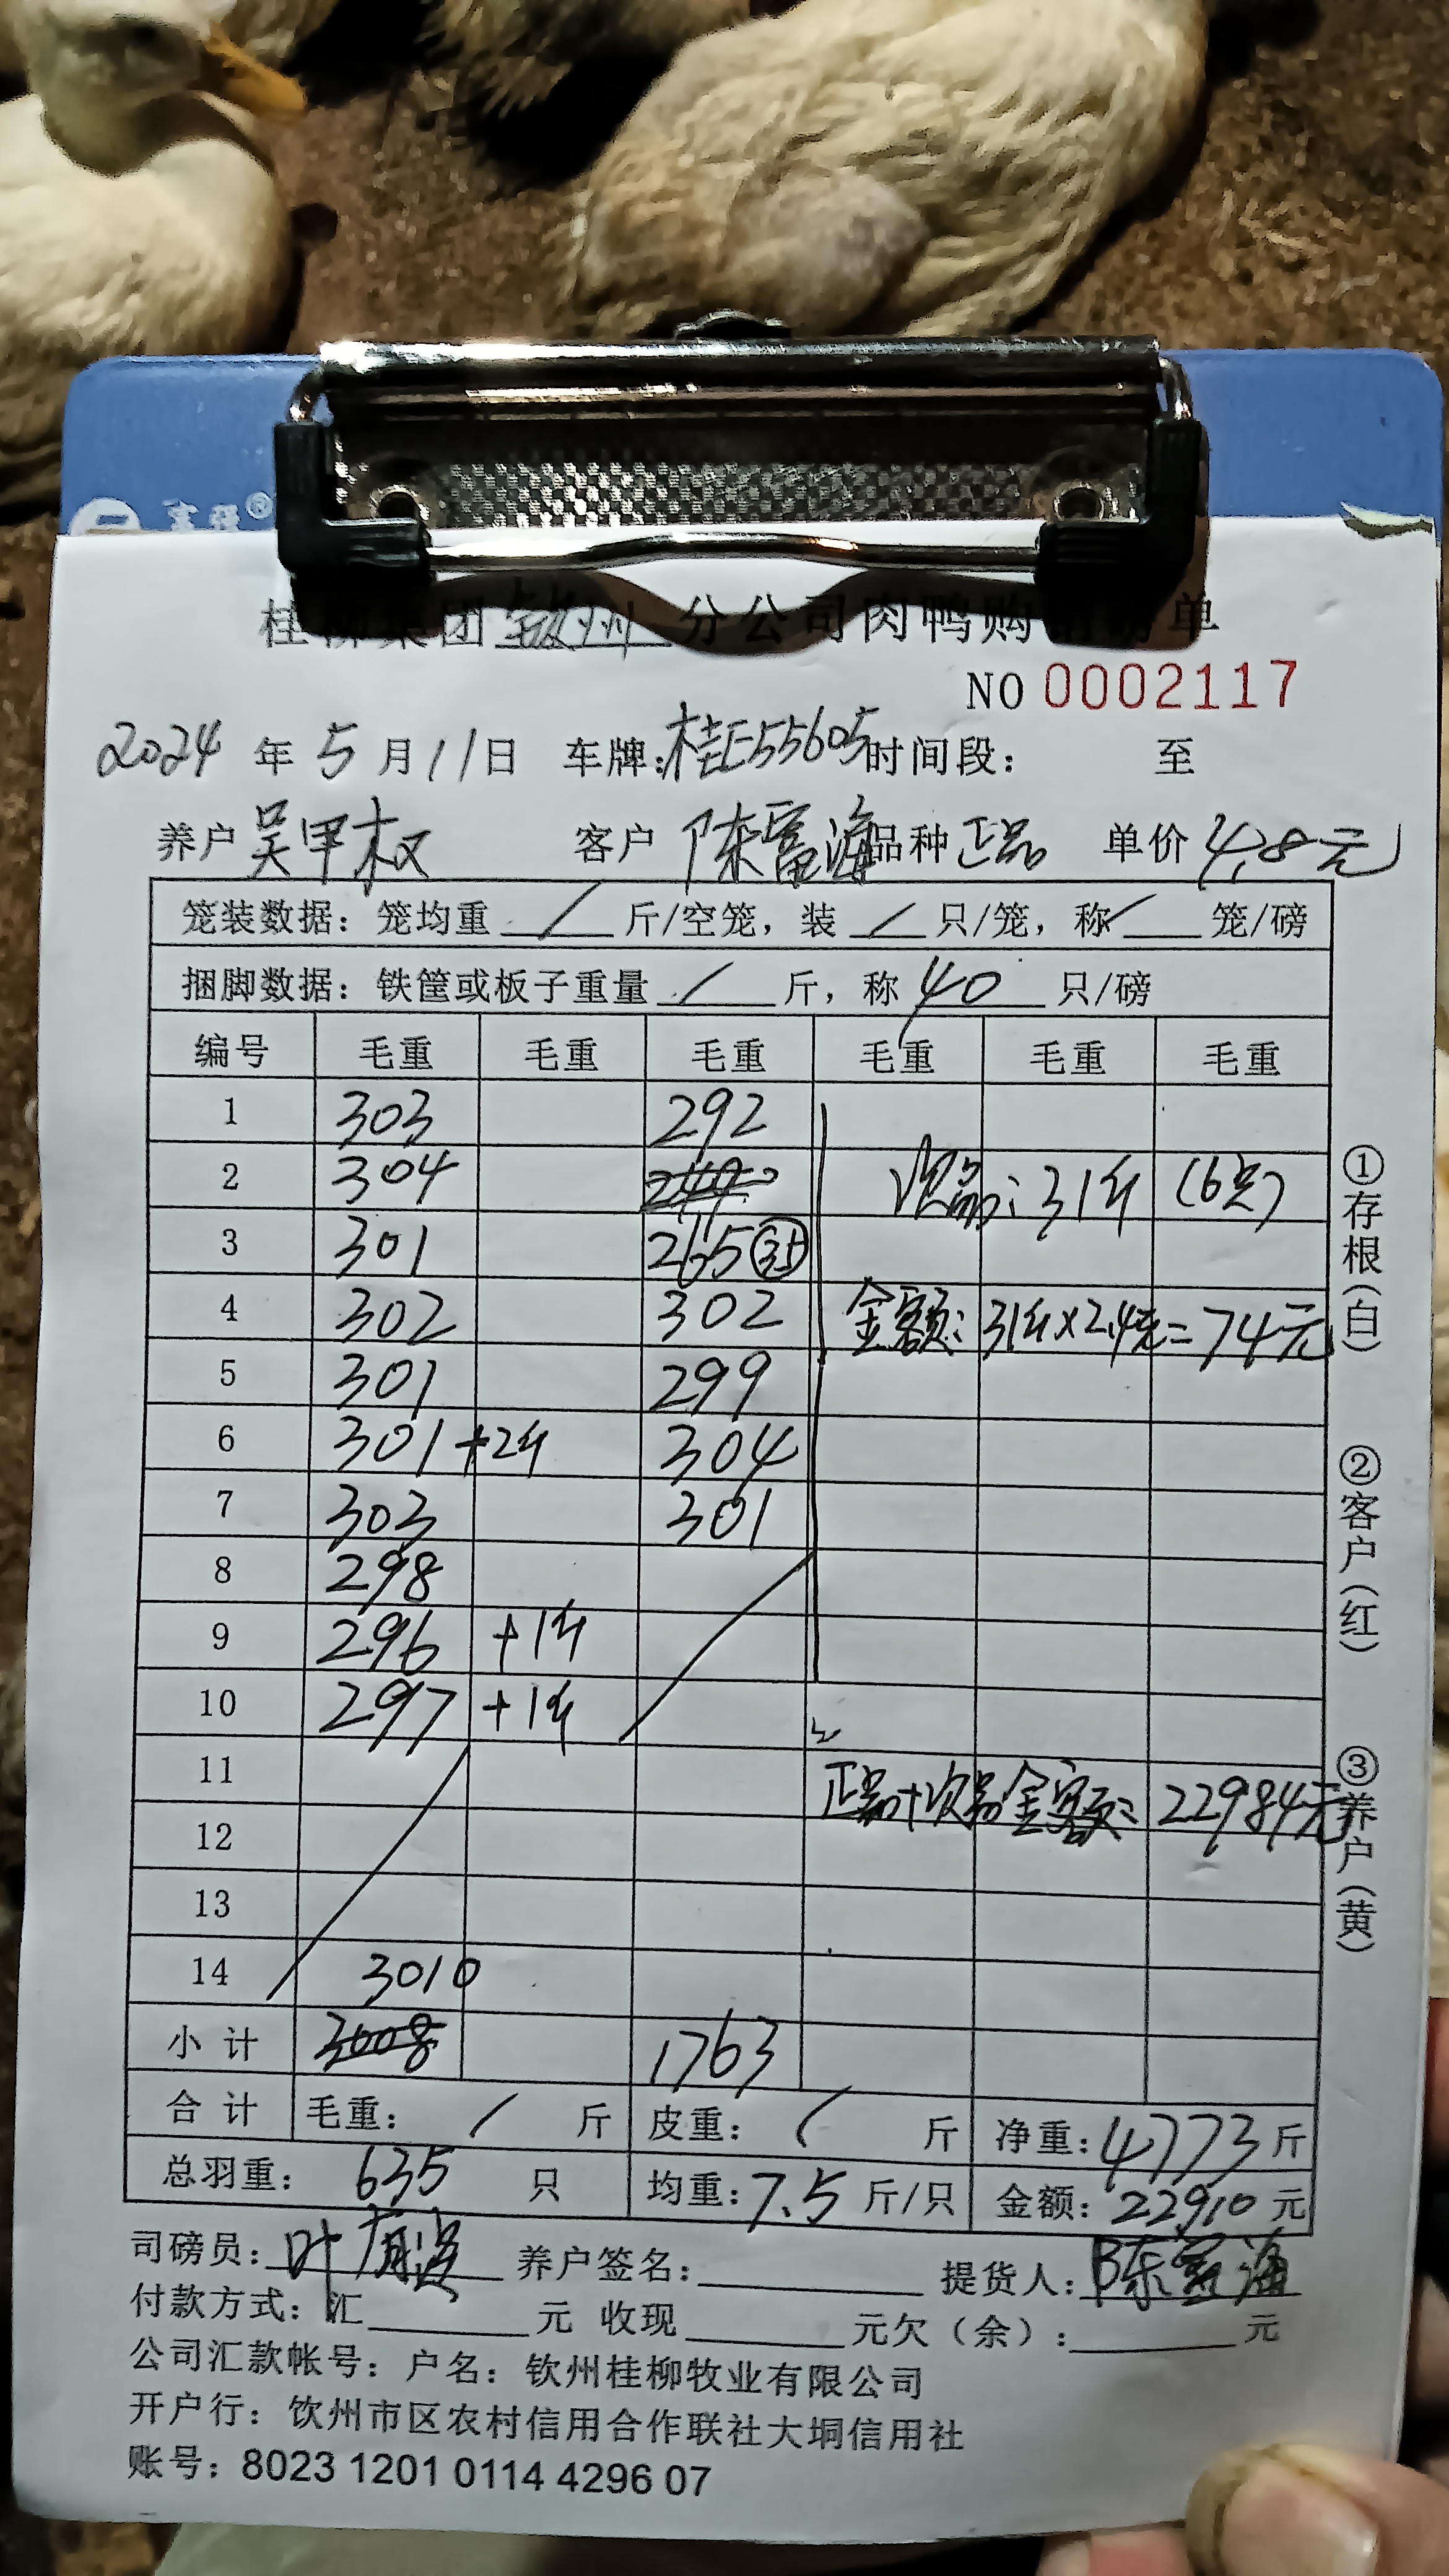 桂柳集团钦州分公司肉鸭购销磅单
NO 0002117
2024 年 5 月 11 日 车牌:桂E55605 时间段: 至
养户 吴甲权 客户 陈富海 品种 正品 单价 4.8元
笼装数据: 笼均重 / 斤/空笼, 装 / 只/笼, 称 / 笼/磅
捆脚数据: 铁筐或板子重量 / 斤, 称 40 只/磅
编号 毛重 毛重 毛重 毛重 毛重 毛重
1 303 292
2 304 次品: 31斤 (6只)
3 301 265 35
4 302 302 金额: 31斤×2.4元=74元
5 301 299
6 301 +2斤 304
7 303 301
8 298
9 296 +1斤
10 297 +1斤
11 正品+次品金额= 22984元
12
13
14 3010
小计 3008 1763
合计 毛重: / 斤 皮重: / 斤 净重: 4773 斤
总羽重: 635 只 均重: 7.5 斤/只 金额: 22910 元
司磅员: 叶 养户签名: 提货人: 陈富海
付款方式: 汇 元 收现 元欠(余): 元
公司汇款帐号: 户名: 钦州桂柳牧业有限公司
开户行: 饮州市区农村信用合作联社大垌信用社
账号: 8023 1201 0114 4296 07
①存根(白)
②客户(红)
③养户(黄)